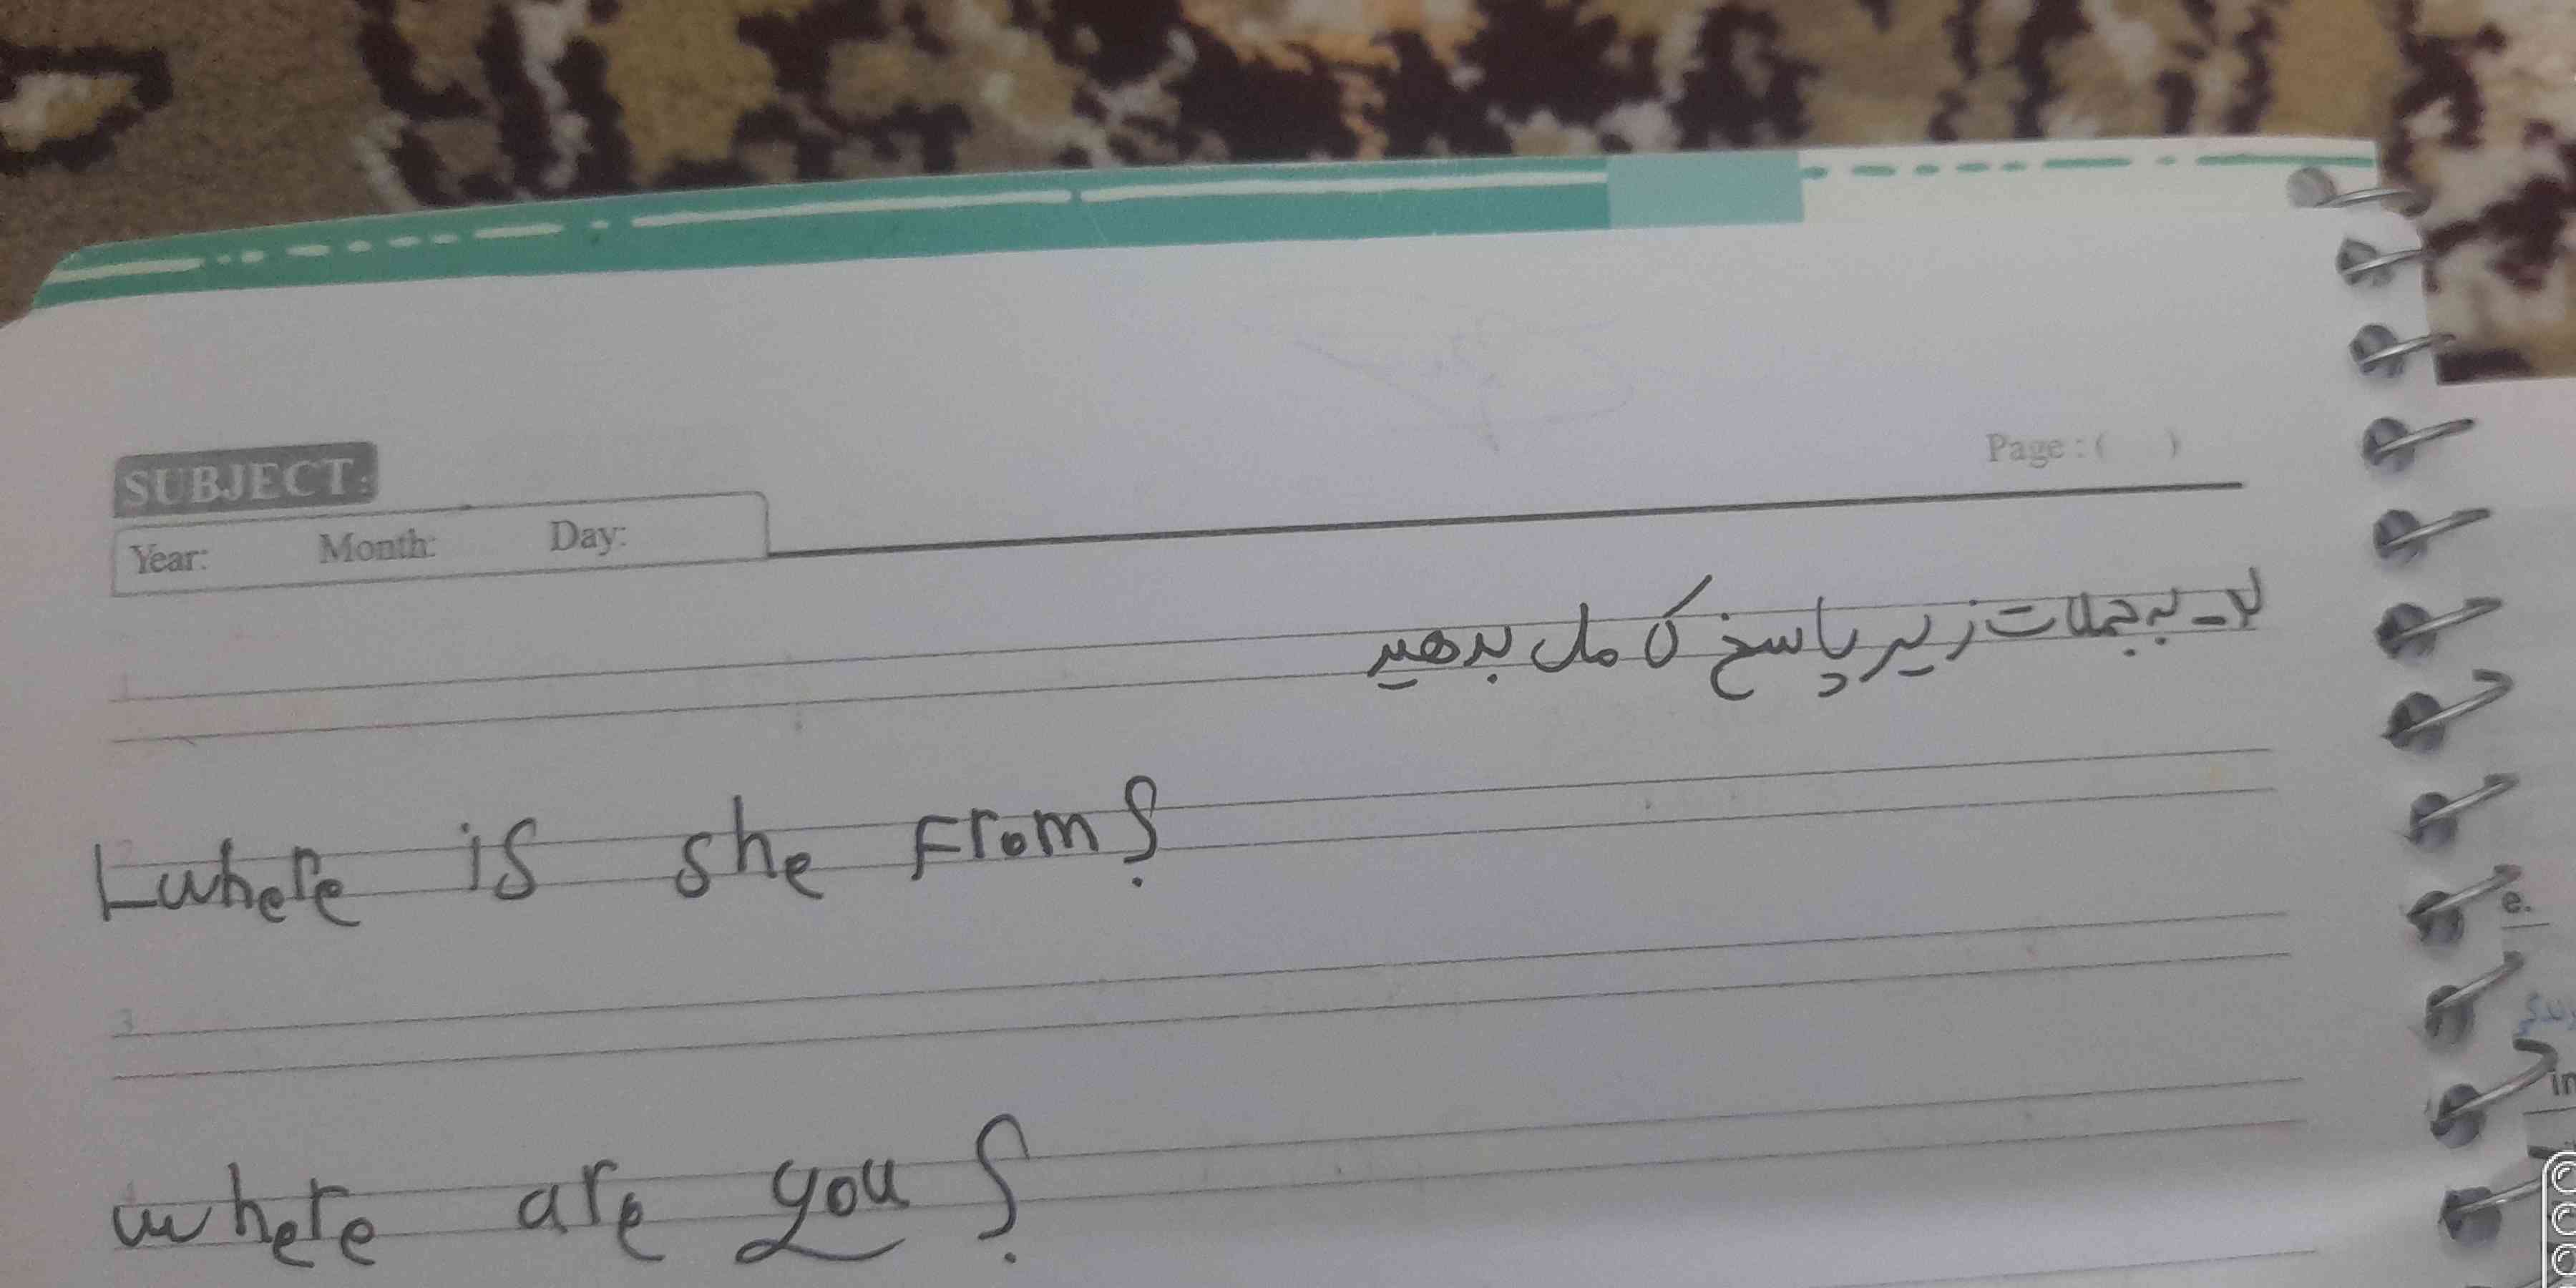 SUBJECT:
Page : ( )
Year: Month: Day:
لا- به جملات زیر پاسخ کامل بدهید
1
1-where is she From؟
3
where are you؟
e.
in